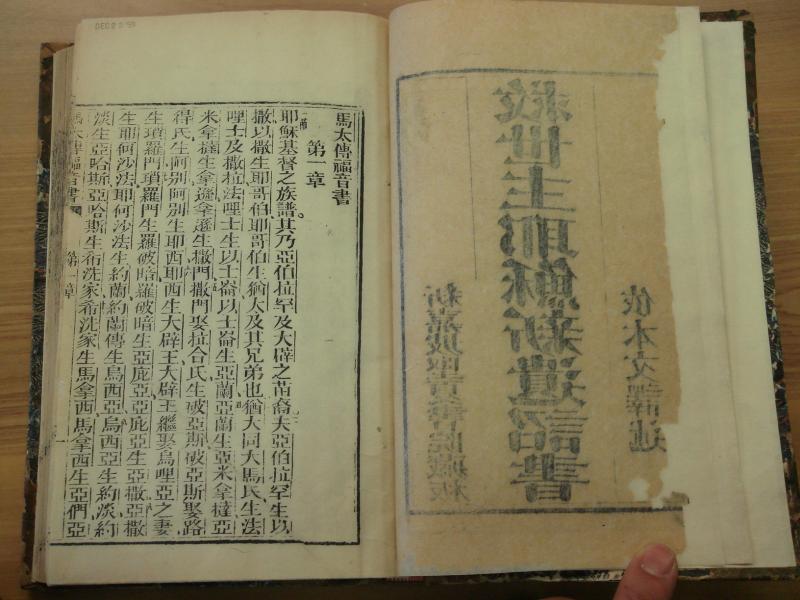 依本文譯述
救世主耶穌新遺詔書
新嘉坡堅夏書院藏板
DEC 2 2 '59
馬太傳福音書
第一章
耶穌基督之族譜。其乃亞伯拉罕及大辟之苗裔夫亞伯拉罕生以
撒以撒生耶哥伯耶哥伯生猶太及其兄弟也猶大同大馬氏生法
哩士及撒拉法哩士生以士崙以士崙生亞蘭亞蘭生亞米拿撻亞
米拿撻生拿遜拿遜生撒門撒門娶拉合氏生破亞斯破亞斯娶路
得氏生阿別阿別生耶西耶西生大辟王大辟王繼娶烏哩亞之妻
生瑣羅門瑣羅門生羅破暗羅破暗生亞庇亞亞庇亞生亞撒亞撒
生耶何沙法耶何沙法生約蘭約蘭傳生烏西亞烏西亞生約淡約
淡生亞哈斯亞哈斯生希洗家希洗家生馬拿西馬拿西生亞們亞
馬太傳福音書 第一章